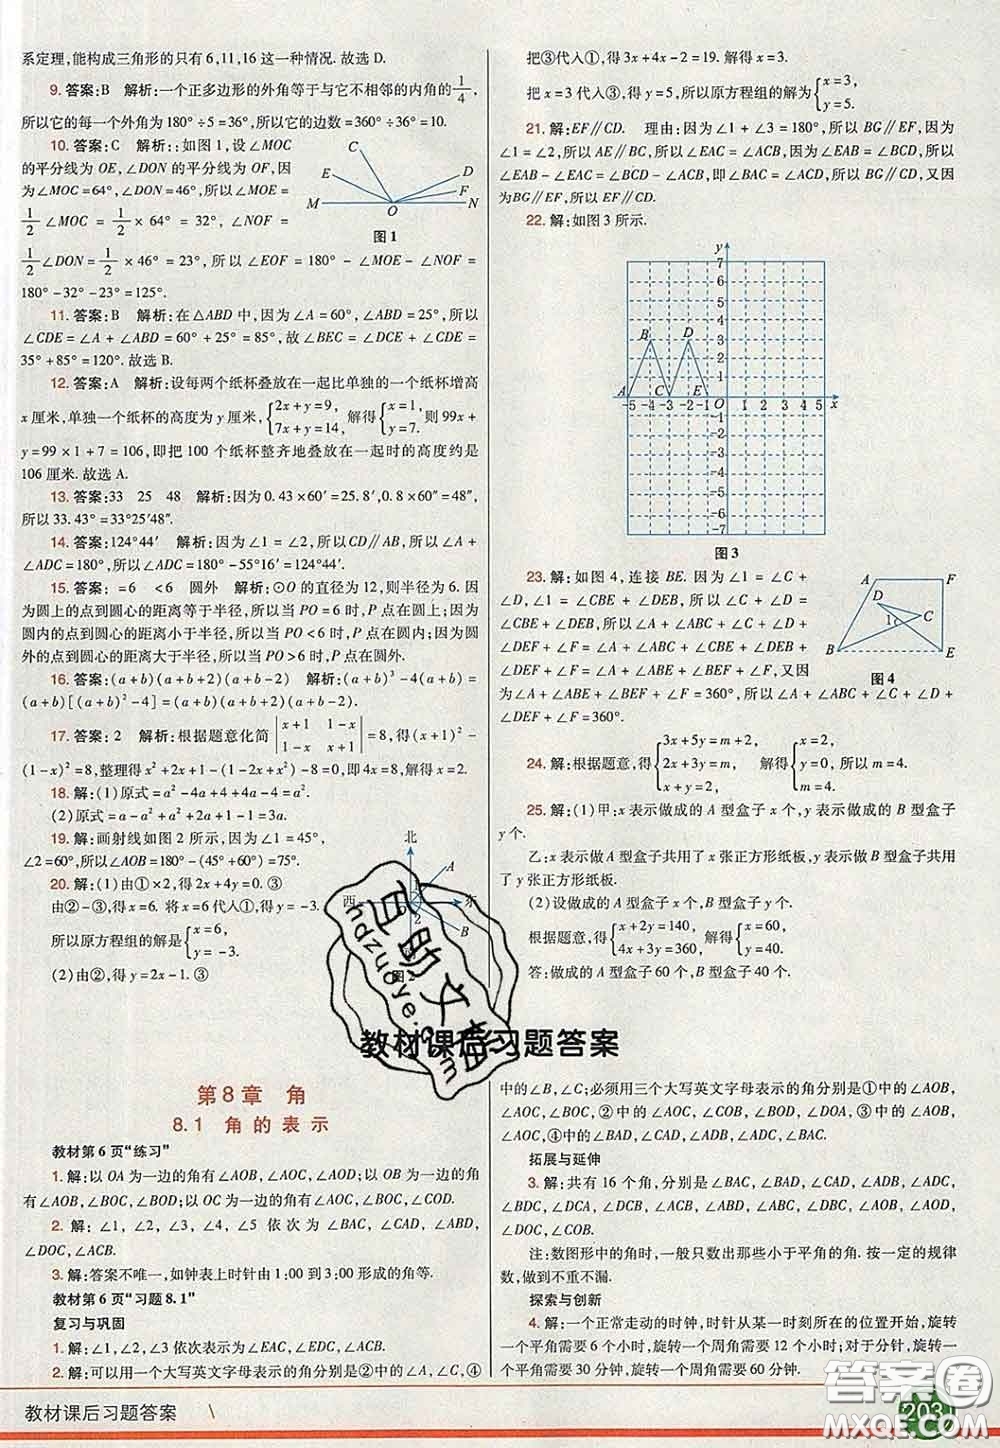 系定理,能构成三角形的只有 6,11,16 这一种情况. 故选 D.
9. 答案:B 解析:一个正多边形的外角等于与它不相邻的内角的 1/4,
所以它的每一个外角为 180°÷5=36°,所以它的边数=360°÷36°=10.
10. 答案:C 解析::如图 1,设∠MOC
的平分线为 OE,∠DON 的平分线为 OF,因
为∠MOC=64°,∠DON=46°,所以∠MOE=
1/2∠MOC=1/2×64°=32°,∠NOF=
1/2∠DON=1/2×46°=23°,所以∠EOF=180°-∠MOE-∠NOF=
180°-32°-23°=125°.
C
E
D
F
M
O
N
图 1
11. 答案:B 解析:在△ABD 中,因为∠A=60°,∠ABD=25°,所以
∠CDE=∠A+∠ABD=60°+25°=85°,故∠BEC=∠DCE+∠CDE=
35°+85°=120°. 故选 B.
12. 答案:A 解析:设每两个纸杯叠放在一起比单独的一个纸杯增高
x 厘米,单独一个纸杯的高度为 y 厘米,{2x+y=9, 7x+y=14, 解得{x=1, y=7. 则 99x+
y=99×1+7=106,即把 100 个纸杯整齐地叠放在一起时的高度约是
106 厘米. 故选 A.
13. 答案:33 25 48 解析:因为 0.43×60′=25.8′,0.8′×60″=48″,
所以 33.43°=33°25′48″.
14. 答案:124°44′ 解析:因为∠1=∠2,所以 CD∥AB,所以∠A+
∠ADC=180°,所以∠ADC=180°-55°16′=124°44′.
15. 答案: =6 <6 圆外 解析:⊙O 的直径为 12,则半径为 6. 因
为圆上的点到圆心的距离等于半径,所以当 PO=6 时,P 点在圆上;因为
圆内的点到圆心的距离小于半径,所以当 PO<6 时,P 点在圆内;因为圆
外的点到圆心的距离大于半径,所以当 PO>6 时,P 点在圆外.
16. 答案:(a+b)(a+b+2)(a+b-2) 解析:(a+b)³-4(a+b)=
(a+b)[(a+b)²-4]=(a+b)(a+b+2)(a+b-2).
17. 答案:2 解析:根据题意化简|x+1 1-x; 1-x x+1|=8,得(x+1)²-
(1-x)²=8,整理得 x²+2x+1-(1-2x+x²)-8=0,即 4x=8,解得 x=2.
18. 解:(1)原式=a²-4a+4+4a-4=a².
(2)原式=a-a²+a²+2a+1-1=3a.
19. 解:画射线如图 2 所示,因为∠1=45°,
∠2=60°,所以∠AOB=180°-(45°+60°)=75°.
20. 解:(1)由①×2,得 2x+4y=0. ③
由②-③,得 x=6. 将 x=6 代入①,得 y=-3.
所以原方程组的解是{x=6, y=-3.
(2)由②,得 y=2x-1. ③
北
A
西
1
东
2
B
把③代入①,得 3x+4x-2=19. 解得 x=3.
把 x=3 代入③,得 y=5,所以原方程组的解为{x=3, y=5.
21. 解:EF∥CD. 理由:因为∠1+∠3=180°,所以 BG∥EF,因为
∠1=∠2,所以 AE∥BC,所以∠EAC=∠ACB,因为∠EAB=∠BCD,所以
∠EAB-∠EAC=∠BCD-∠ACB,即∠BAC=∠ACD,所以 BG∥CD,又因
为 BG∥EF,所以 EF∥CD.
22. 解:如图 3 所示.
y
7
6
5
4
3
2
1
B
D
A
C
E
-5 -4 -3 -2 -1 O 1 2 3 4 5 x
-1
-2
-3
-4
-5
-6
-7
图 3
23. 解:如图 4,连接 BE. 因为∠1=∠C+
∠D,∠1=∠CBE+∠DEB,所以∠C+∠D=
∠CBE+∠DEB,所以∠A+∠ABC+∠C+
∠D+∠DEF+∠F=∠A+∠ABC+∠CBE+
∠DEB+∠DEF+∠F=∠A+∠ABE+∠BEF+∠F,又因
为∠A+∠ABE+∠BEF+∠F=360°,所以∠A+∠ABC+∠C+∠D+
∠DEF+∠F=360°.
A
F
D
1
C
B
E
图 4
24. 解:根据题意,得{3x+5y=m+2, 2x+3y=m, x+y=2, 解得{x=2, y=0, 所以 m=4. m=4.
25. 解:(1)甲:x 表示做成的 A 型盒子 x 个,y 表示做成的 B 型盒子
y 个.
乙:x 表示做 A 型盒子共用了 x 张正方形纸板,y 表示做 B 型盒子共用
了 y 张正方形纸板.
(2)设做成的 A 型盒子 x 个,B 型盒子 y 个.
根据题意,得{x+2y=140, 4x+3y=360, 解得{x=60, y=40.
答:做成的 A 型盒子 60 个,B 型盒子 40 个.
教材课后习题答案
第 8 章 角
8.1 角的表示
教材第 6 页“练习”
1. 解:以 OA 为一边的角有∠AOB,∠AOC,∠AOD;以 OB 为一边的角
有∠AOB,∠BOC,∠BOD;以 OC 为一边的角有∠AOC,∠BOC,∠COD.
2. 解:∠1,∠2,∠3,∠4,∠5 依次为∠BAC,∠CAD,∠ABD,
∠DOC,∠ACB.
3. 解:答案不唯一,如钟表上时针由 1:00 到 3:00 形成的角等.
教材第 6 页“习题 8.1”
复习与巩固
1. 解:∠1,∠2,∠3 依次表示为∠BAE,∠CAD,∠ACD.
2. 解:可以用一个大写英文字母表示的角分别是②中的∠A,∠C,④
中的∠B,∠C;必须用三个大写英文字母表示的角分别是①中的∠AOB,
∠AOC,∠BOC,②中的∠AOB,∠BOD,∠DOA,③中的∠AOB,∠BOC,
∠AOC,④中的∠BAD,∠CAD,∠BAC,∠ADB,∠ADC.
拓展与延伸
3. 解:共有 16 个角,分别是∠BAC,∠BAD,∠CAD,∠ADB,∠ADC,
∠BDC,∠DCA,∠DCB,∠ACB,∠CBD,∠CBA,∠DBA,∠AOB,∠AOD,
∠DOC,∠COB.
注:数图形中的角时,一般只数出那些小于平角的角. 按一定的规律
数,做到不重不漏.
探索与创新
4. 解:一个正常走动的时钟,时针从某一时刻所在的位置开始,旋转
一个平角需要 6 个小时,旋转一个周角需要 12 个小时;对于分针,旋转一
个平角需要 30 分钟,旋转一个周角需要 60 分钟.
教材课后习题答案
203
答案圈
MXQE.COM